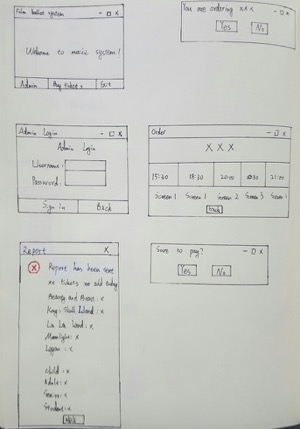 Film Ticket system - □ X
Welcome to movie system!
Admin Buy tickets Exit
You are ordering XXX - □ X
Yes No
Admin Login - □ X
Admin Login
Username:
Password:
Sign in Back
Order - □ X
XXX
15:30 18:30 20:00 21:00
Screen 1 Screen 1 Screen 2 Screen 3 Screen 1
Back
Report X
Report has been sent
tickets we sold today
Beauty and Beast: x
Kong: Skull Island: x
La La Land: x
Moonlight: x
Logan: x
Child: x
Adult: x
Senior: x
Student: x
Sure to pay? - □ X
Yes No